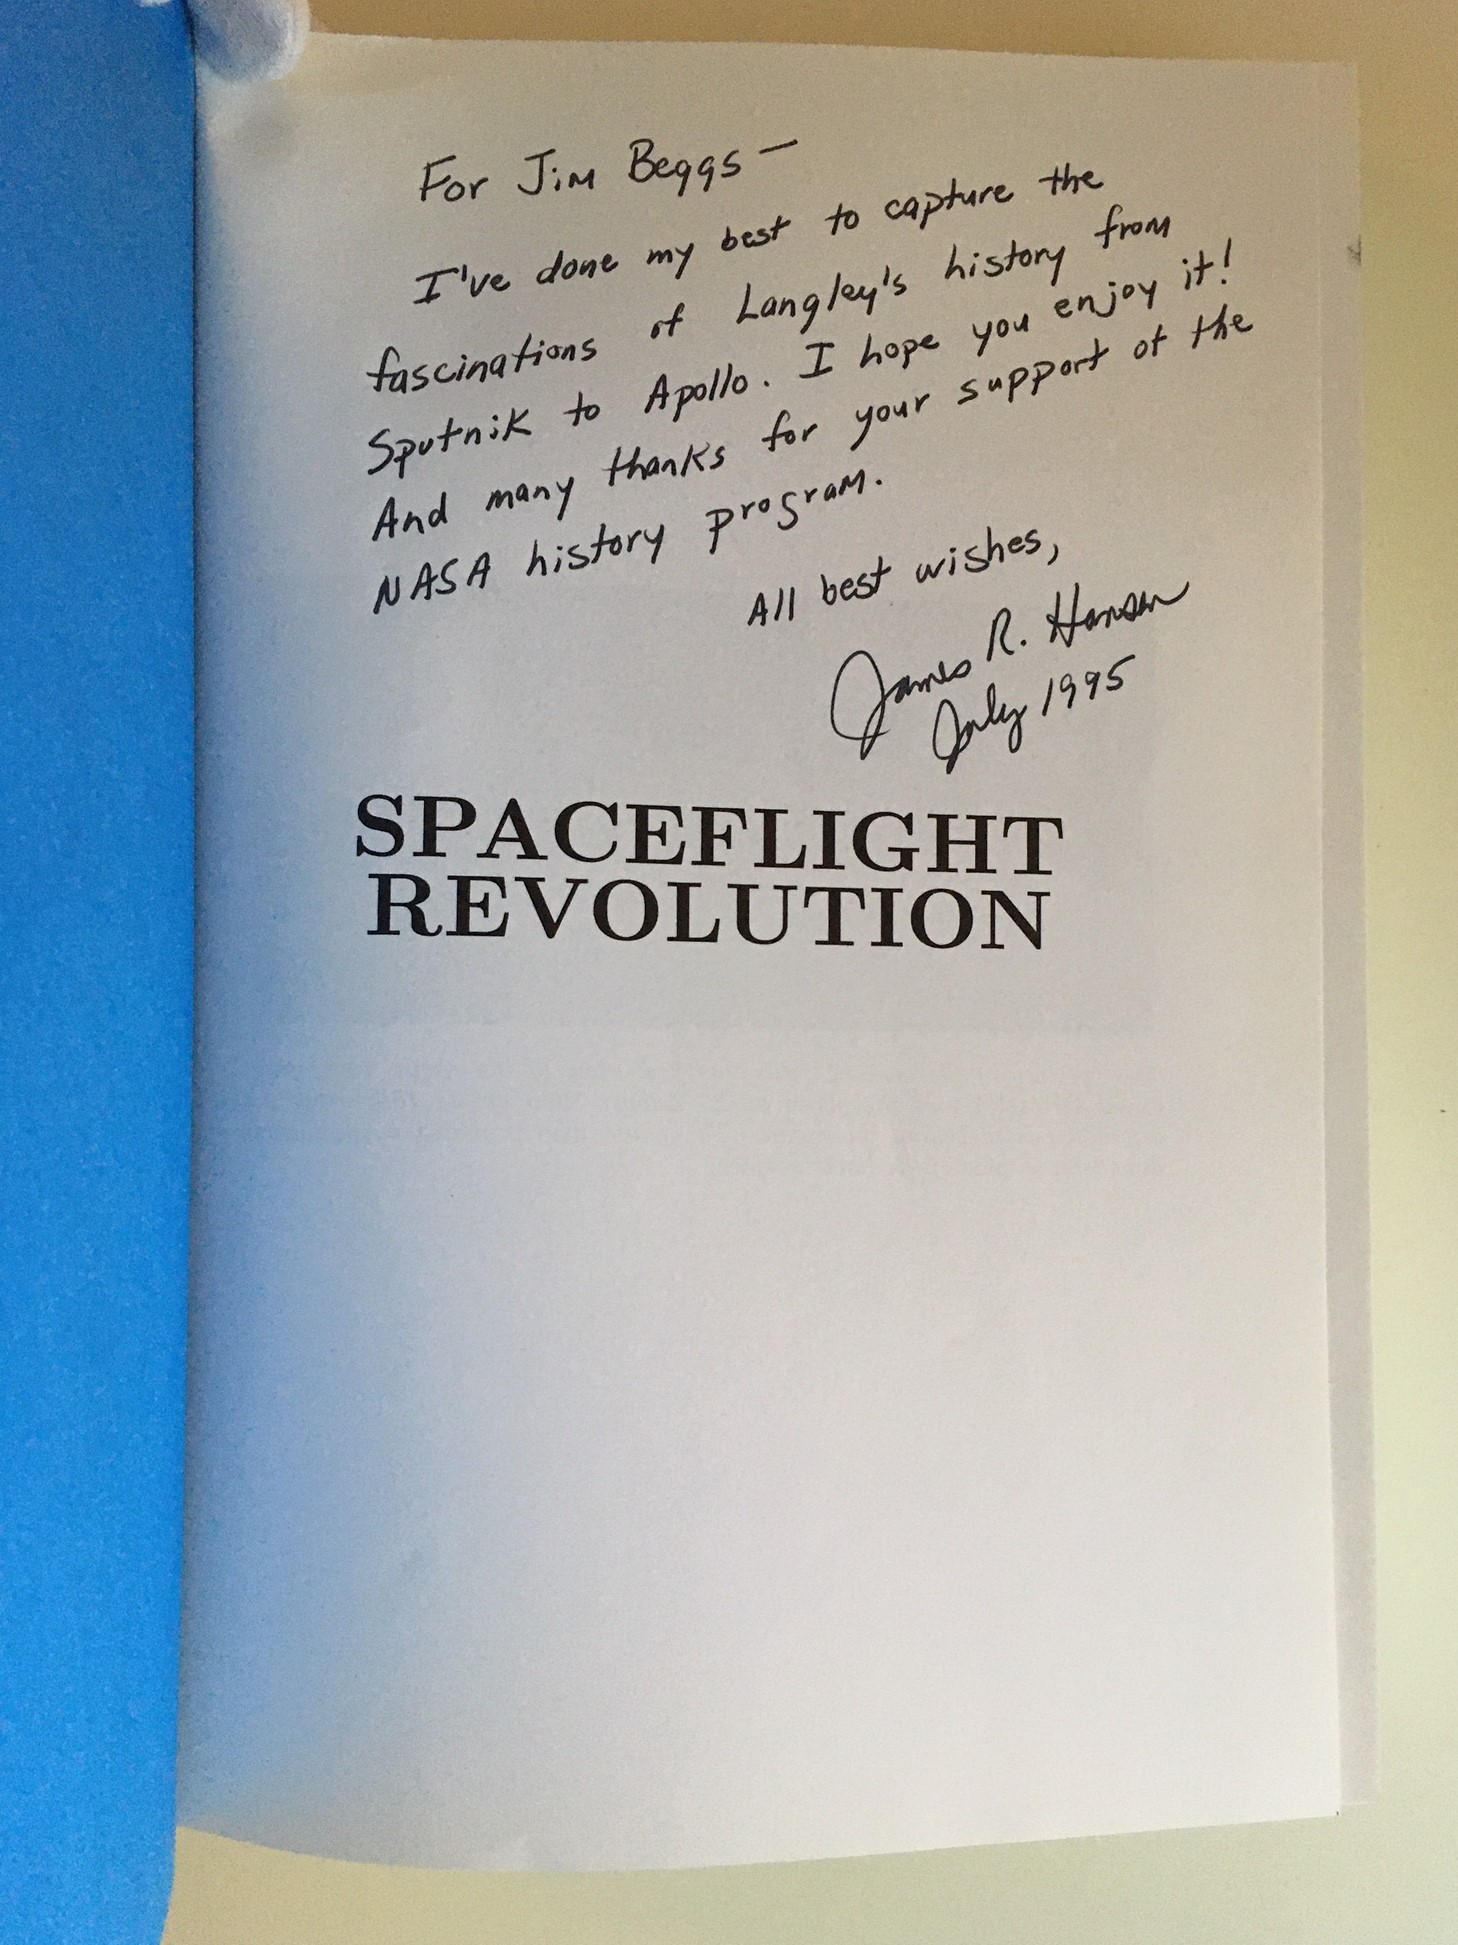 For Jim Beggs —
I've done my best to capture the
fascinations of Langley's history from
Sputnik to Apollo. I hope you enjoy it!
And many thanks for your support of the
NASA history program.
All best wishes,
James R. Hansen
July 1995
SPACEFLIGHT
REVOLUTION